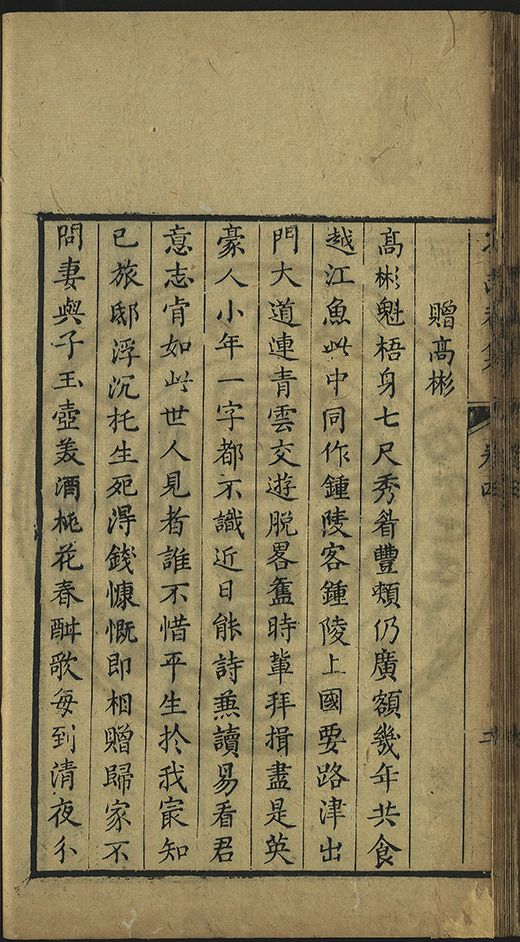 贈高彬
高彬魁梧身七尺秀眉豐頰仍廣額幾年共食
越江魚此中同作鍾陵客鍾陵上國要路津出
門大道連青雲交遊脫畧舊時輩拜揖盡是英
豪人小年一字都不識近日能詩兼讀易看君
意志肯如此世人見者誰不惜平生於我最知
已旅邸浮沉托生死得錢慷慨即相贈歸家不
問妻與子玉壺美酒桃花春酣歌每到清夜分
卷四